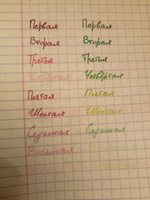 Первая Первая
Вторая Вторая
Третья Третья
Четвёртая
Пятая Пятая
Шестая Шестая
Седьмая Седьмая
Восьмая